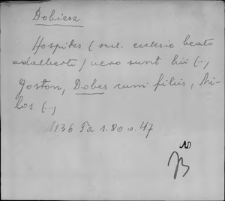 Dobiesz
Hospites (sunt. ecclesie beati
adalberti) vero sunt hii (.,
Joston, Dobes cum filiis, Mi-
los (.,
1136 Pa 1.80 v. 47